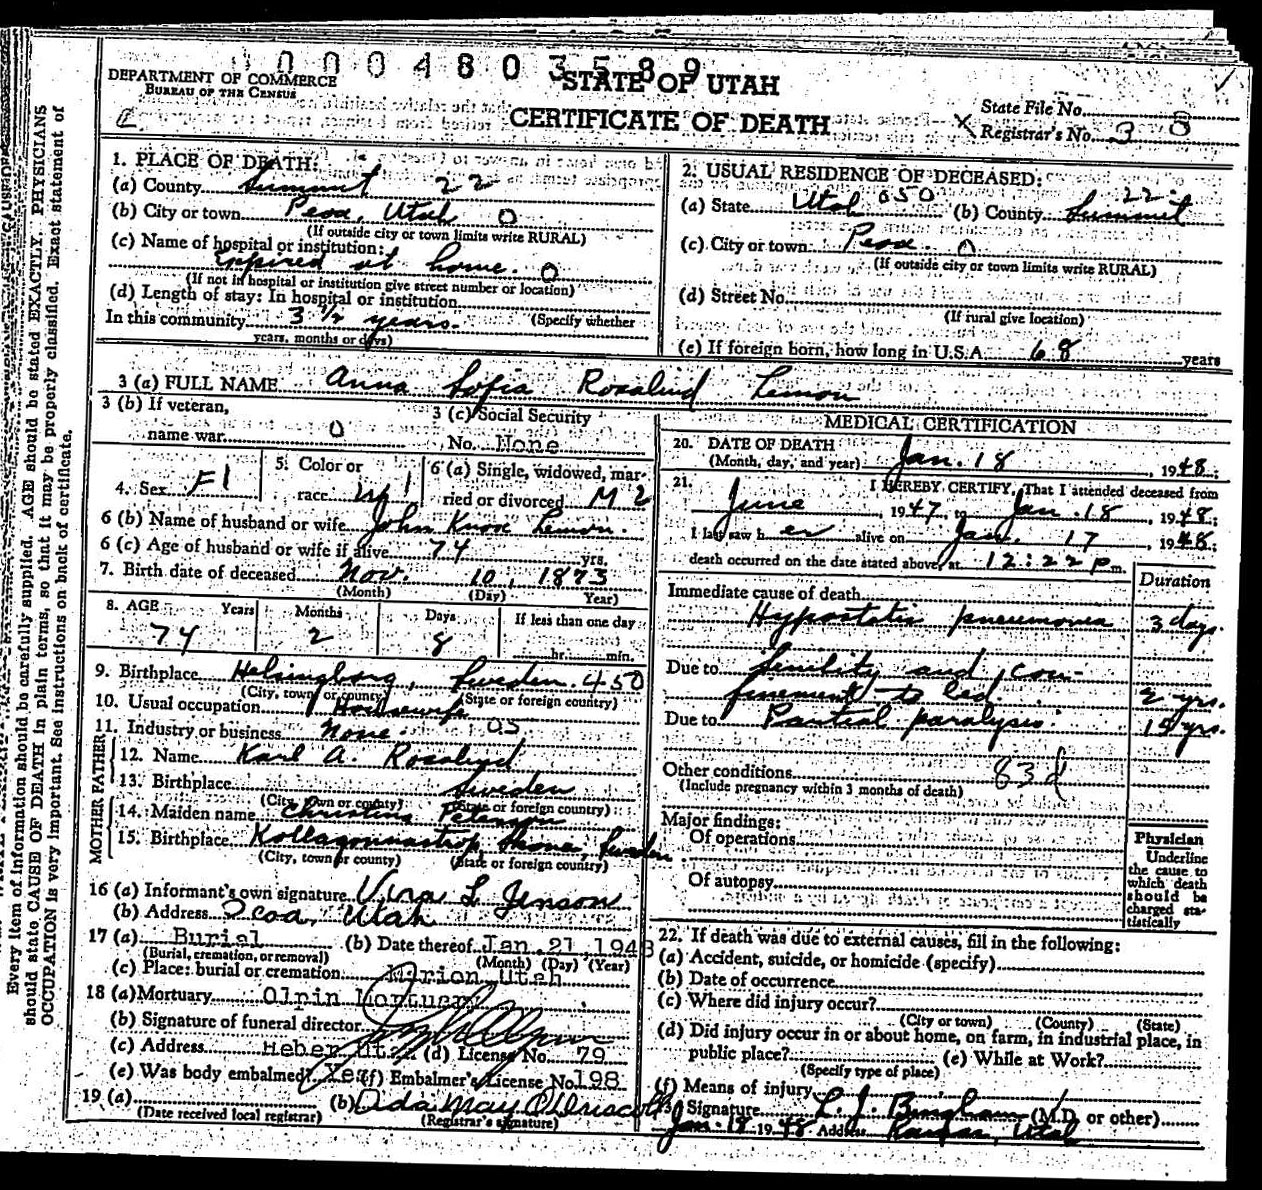 0 0 0 4 8 0 3 5 8 9
DEPARTMENT OF COMMERCE
BUREAU OF THE CENSUS
STATE OF UTAH
CERTIFICATE OF DEATH
State File No.
X Registrar's No. 3 8
1. PLACE OF DEATH:
(a) County Summit 22
(b) City or town Peoa, Utah 0
(If outside city or town limits write RURAL)
(c) Name of hospital or institution:
Expired at home. 0
(If not in hospital or institution give street number or location)
(d) Length of stay: In hospital or institution
In this community 3 1/2 years. (Specify whether
years, months or days)
2. USUAL RESIDENCE OF DECEASED:
(a) State Utah 050 (b) County Summit 22
(c) City or town Peoa. 0
(If outside city or town limits write RURAL)
(d) Street No.
(If rural give location)
(e) If foreign born, how long in U.S.A. 68 years
3 (a) FULL NAME Anna Sofia Rosalind Lemon
3 (b) If veteran,
name war 0
3 (c) Social Security
No. None
4. Sex F 1
5. Color or
race W 1
6 (a) Single, widowed, mar-
ried or divorced M 2
6 (b) Name of husband or wife John Knox Lemon.
6 (c) Age of husband or wife if alive 74 yrs.
7. Birth date of deceased Nov. 10, 1873
(Month) (Day) Year)
8. AGE Years Months Days If less than one day
74 2 8 hr. min.
9. Birthplace Helsingborg, Sweden. 450
(City, town or county) (State or foreign country)
10. Usual occupation Housewife
11. Industry or business None. 05
FATHER
12. Name Karl A. Rosalind
13. Birthplace Sweden
(City, town or county) (State or foreign country)
MOTHER
14. Maiden name Christina Peterson
15. Birthplace Skone, Sweden
(City, town or county) (State or foreign country)
16 (a) Informant's own signature Vera L Jenson
(b) Address Peoa, Utah
17 (a) Burial (b) Date thereof Jan. 21, 1948
(Burial, cremation, or removal) (Month) (Day) (Year)
(c) Place: burial or cremation Marion Utah
18 (a) Mortuary Olpin Mortuary
(b) Signature of funeral director
(c) Address Heber Utah (d) License No. 79
(e) Was body embalmed? Yes (f) Embalmer's License No. 198
19 (a) (b) Ada May O'Driscoll
(Date received local registrar) (Registrar's signature)
MEDICAL CERTIFICATION
20. DATE OF DEATH
(Month, day, and year) Jan. 18, 1948;
21. I HEREBY CERTIFY, That I attended deceased from
June, 1947, to Jan. 18, 1948;
I last saw h er alive on Jan. 17, 1948;
death occurred on the date stated above, at 12:22 p m.
Duration
Immediate cause of death
Hypostatic pneumonia 3 days.
Due to Senility and con-
finement to bed 2 yrs.
Due to Partial paralysis. 15 yrs.
Other conditions 83d
(Include pregnancy within 3 months of death)
Major findings:
Of operations
Of autopsy
Physician
Underline
the cause to
which death
should be
charged sta-
tistically
22. If death was due to external causes, fill in the following:
(a) Accident, suicide, or homicide (specify)
(b) Date of occurrence
(c) Where did injury occur?
(City or town) (County) (State)
(d) Did injury occur in or about home, on farm, in industrial place, in
public place? (e) While at Work?
(Specify type of place)
(f) Means of injury
Signature L. J. Bingham (M.D. or other)
Jan. 18 1948 Address Kamas, Utah
Every item of information should be carefully supplied. AGE should be stated EXACTLY. PHYSICIANS
should state CAUSE OF DEATH in plain terms, so that it may be properly classified. Exact statement of
OCCUPATION is very important. See instructions on back of certificate.